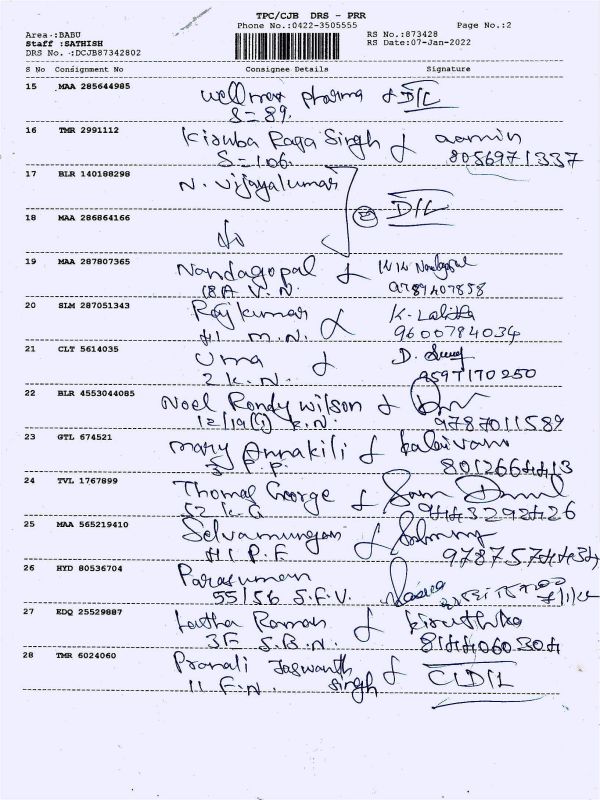 TPC/CJB DRS - PRR
Area .:BABU Phone No.:0422-3505555 Page No.:2
Staff :SATHISH RS No.:873428
DRS No. .:DCJB87342802 RS Date:07-Jan-2022
S No Consignment No Consignee Details Signature
15 MAA 285644985 Wellmax pharma & DIL
S=89.
16 TMR 2991112 Kiruba Raga Singh & aamin
S=106. 8056971337
17 BLR 140188298 N. Vijayakumar
DIL
18 MAA 286864166
19 MAA 287807365 Nandagopal &
18A V.N. 9789407858
20 SLM 287051343 Rajkumar & K. Lalitha
41 M.N. 9600784034
21 CLT 5614035 Uma & D.
2 K.N. 9597170250
22 BLR 4553044085 Noel Rondy Wilson &
12/19(1) K.N. 9787011589
23 GTL 674521 Mary Annakili & Kalaivani
5 P.P. 8012664413
24 TVL 1767899 Thomas George & Sam
52 K.G 9443292426
25 MAA 565219410 Selvamurugan &
41 P.F 9787574434
26 HYD 80536704 Parasuman
55/56 S.F.V.
27 EDQ 25529887 Latha Raman & Kiruthika
3E S.B.N. 8144060304
28 TMR 6024060 Pranali Jaswanth & CLDIL
11 F.N. Singh